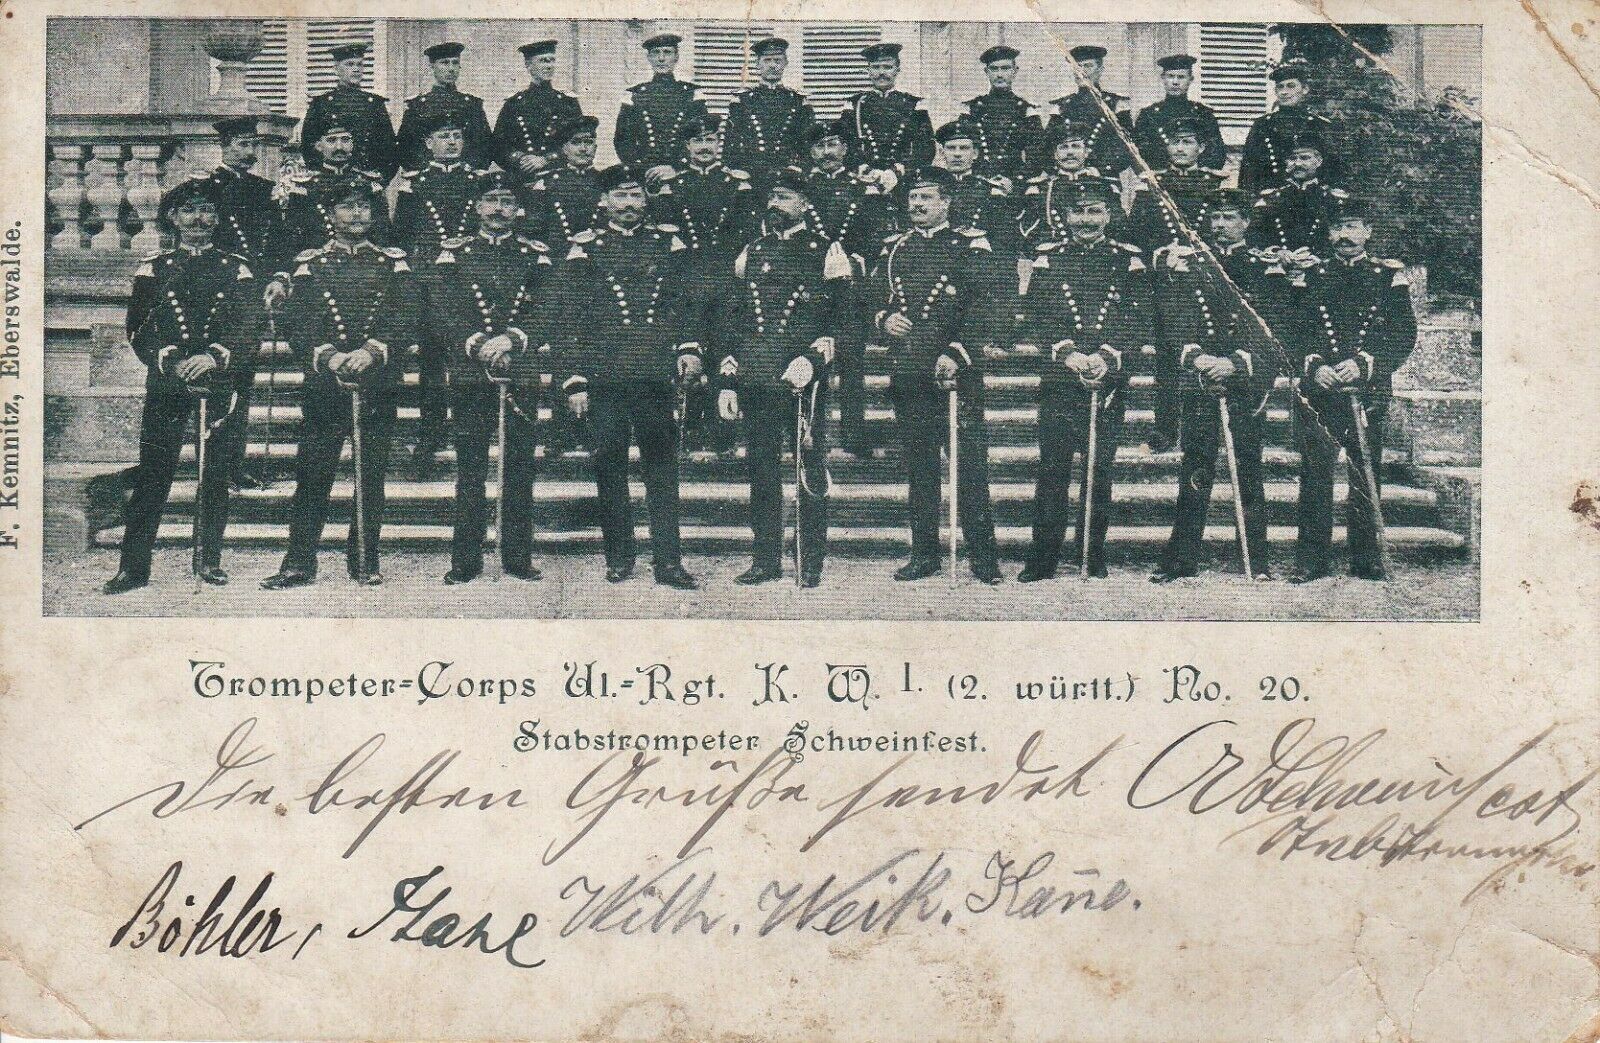 F. Kemnitz, Eberswalde.
Trompeter=Corps Ul.=Rgt. K. W. I. (2. württ.) No. 20.
Stabstrompeter Schweinfest.
Die besten Grüße sendet Schweinfest
Stabstrompeter
Böhler, Wilh. Weik. Kañe.